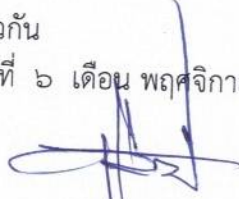 วกัน
ที่ ๖ เดือน พฤศจิกา